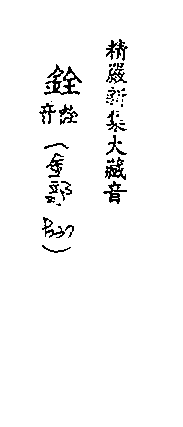 精嚴新集大藏音
銓
音詮
(金部